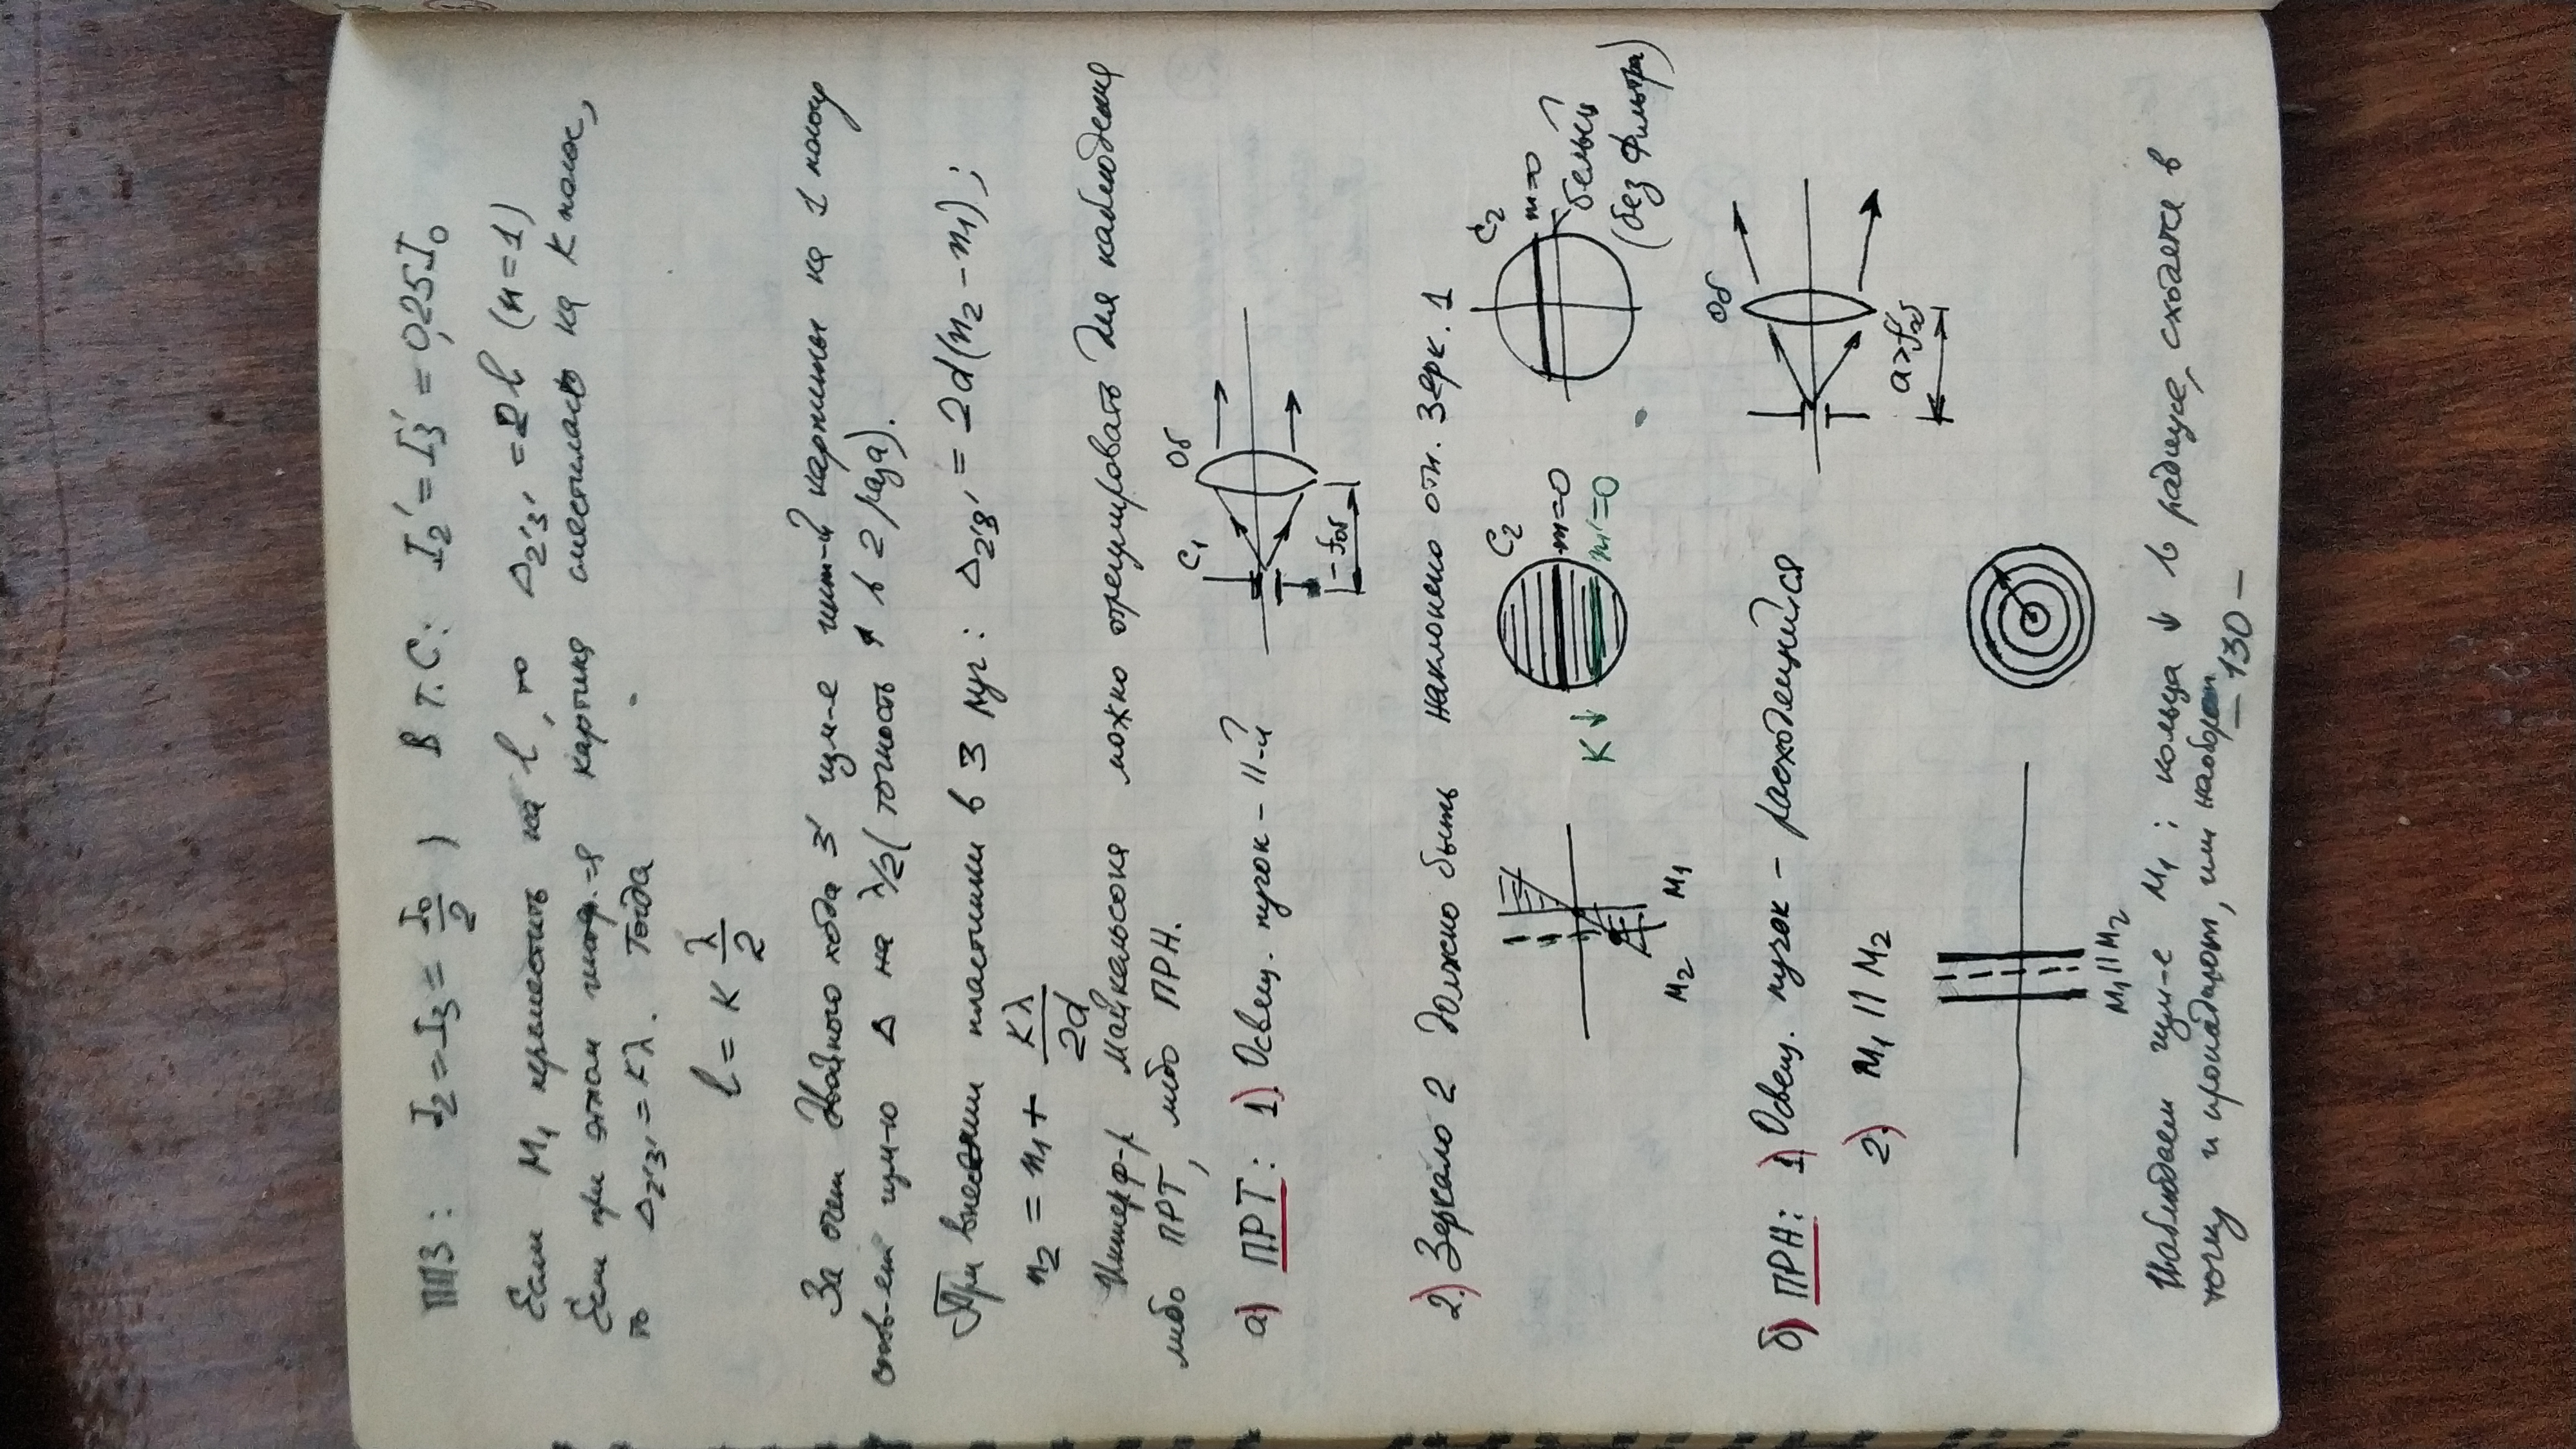 ПП3: I₂ = I₃ = I₀/2 ; В т.С: I₂' = I₃' = 0,25I₀
Если M₁ переместить на l, то Δ₂'₃' = 2l (n=1)
Если при этом интерф.-я картина сместилась на K полос,
то Δ₂'₃' = Kλ. Тогда
l = K λ/2
За счет двойного хода 3' изм-е инт-й картины на 1 полосу
соотв-ет изм-ю Δ на λ/2 (точность ↑ в 2 раза).
При внесении пластинки в 3 луч: Δ₂'₃' = 2d(n₂ – n₁);
n₂ = n₁ + Kλ/2d
Интерф-р Майкельсона можно отрегулировать для наблюдения
либо ПРТ, либо ПРН.
C₁ Об
а) ПРТ: 1). Освещ. пучок – II-й
– fоб
2.) Зеркало 2 должно быть наклонено отн. зерк. 1
C₂ C₂
m=0 m=0
K ↓ m'=0 белый
(без фильтра)
M₂ M₁
Об
б) ПРН: 1) Освещ. пучок – расходящийся
2.) M₁ II M₂
a>f'об
M₁ II M₂
Наблюдаем изм-е M₁; кольца ↓ в радиусе, сходятся в
точку и пропадают, или наоборот
– 130 –